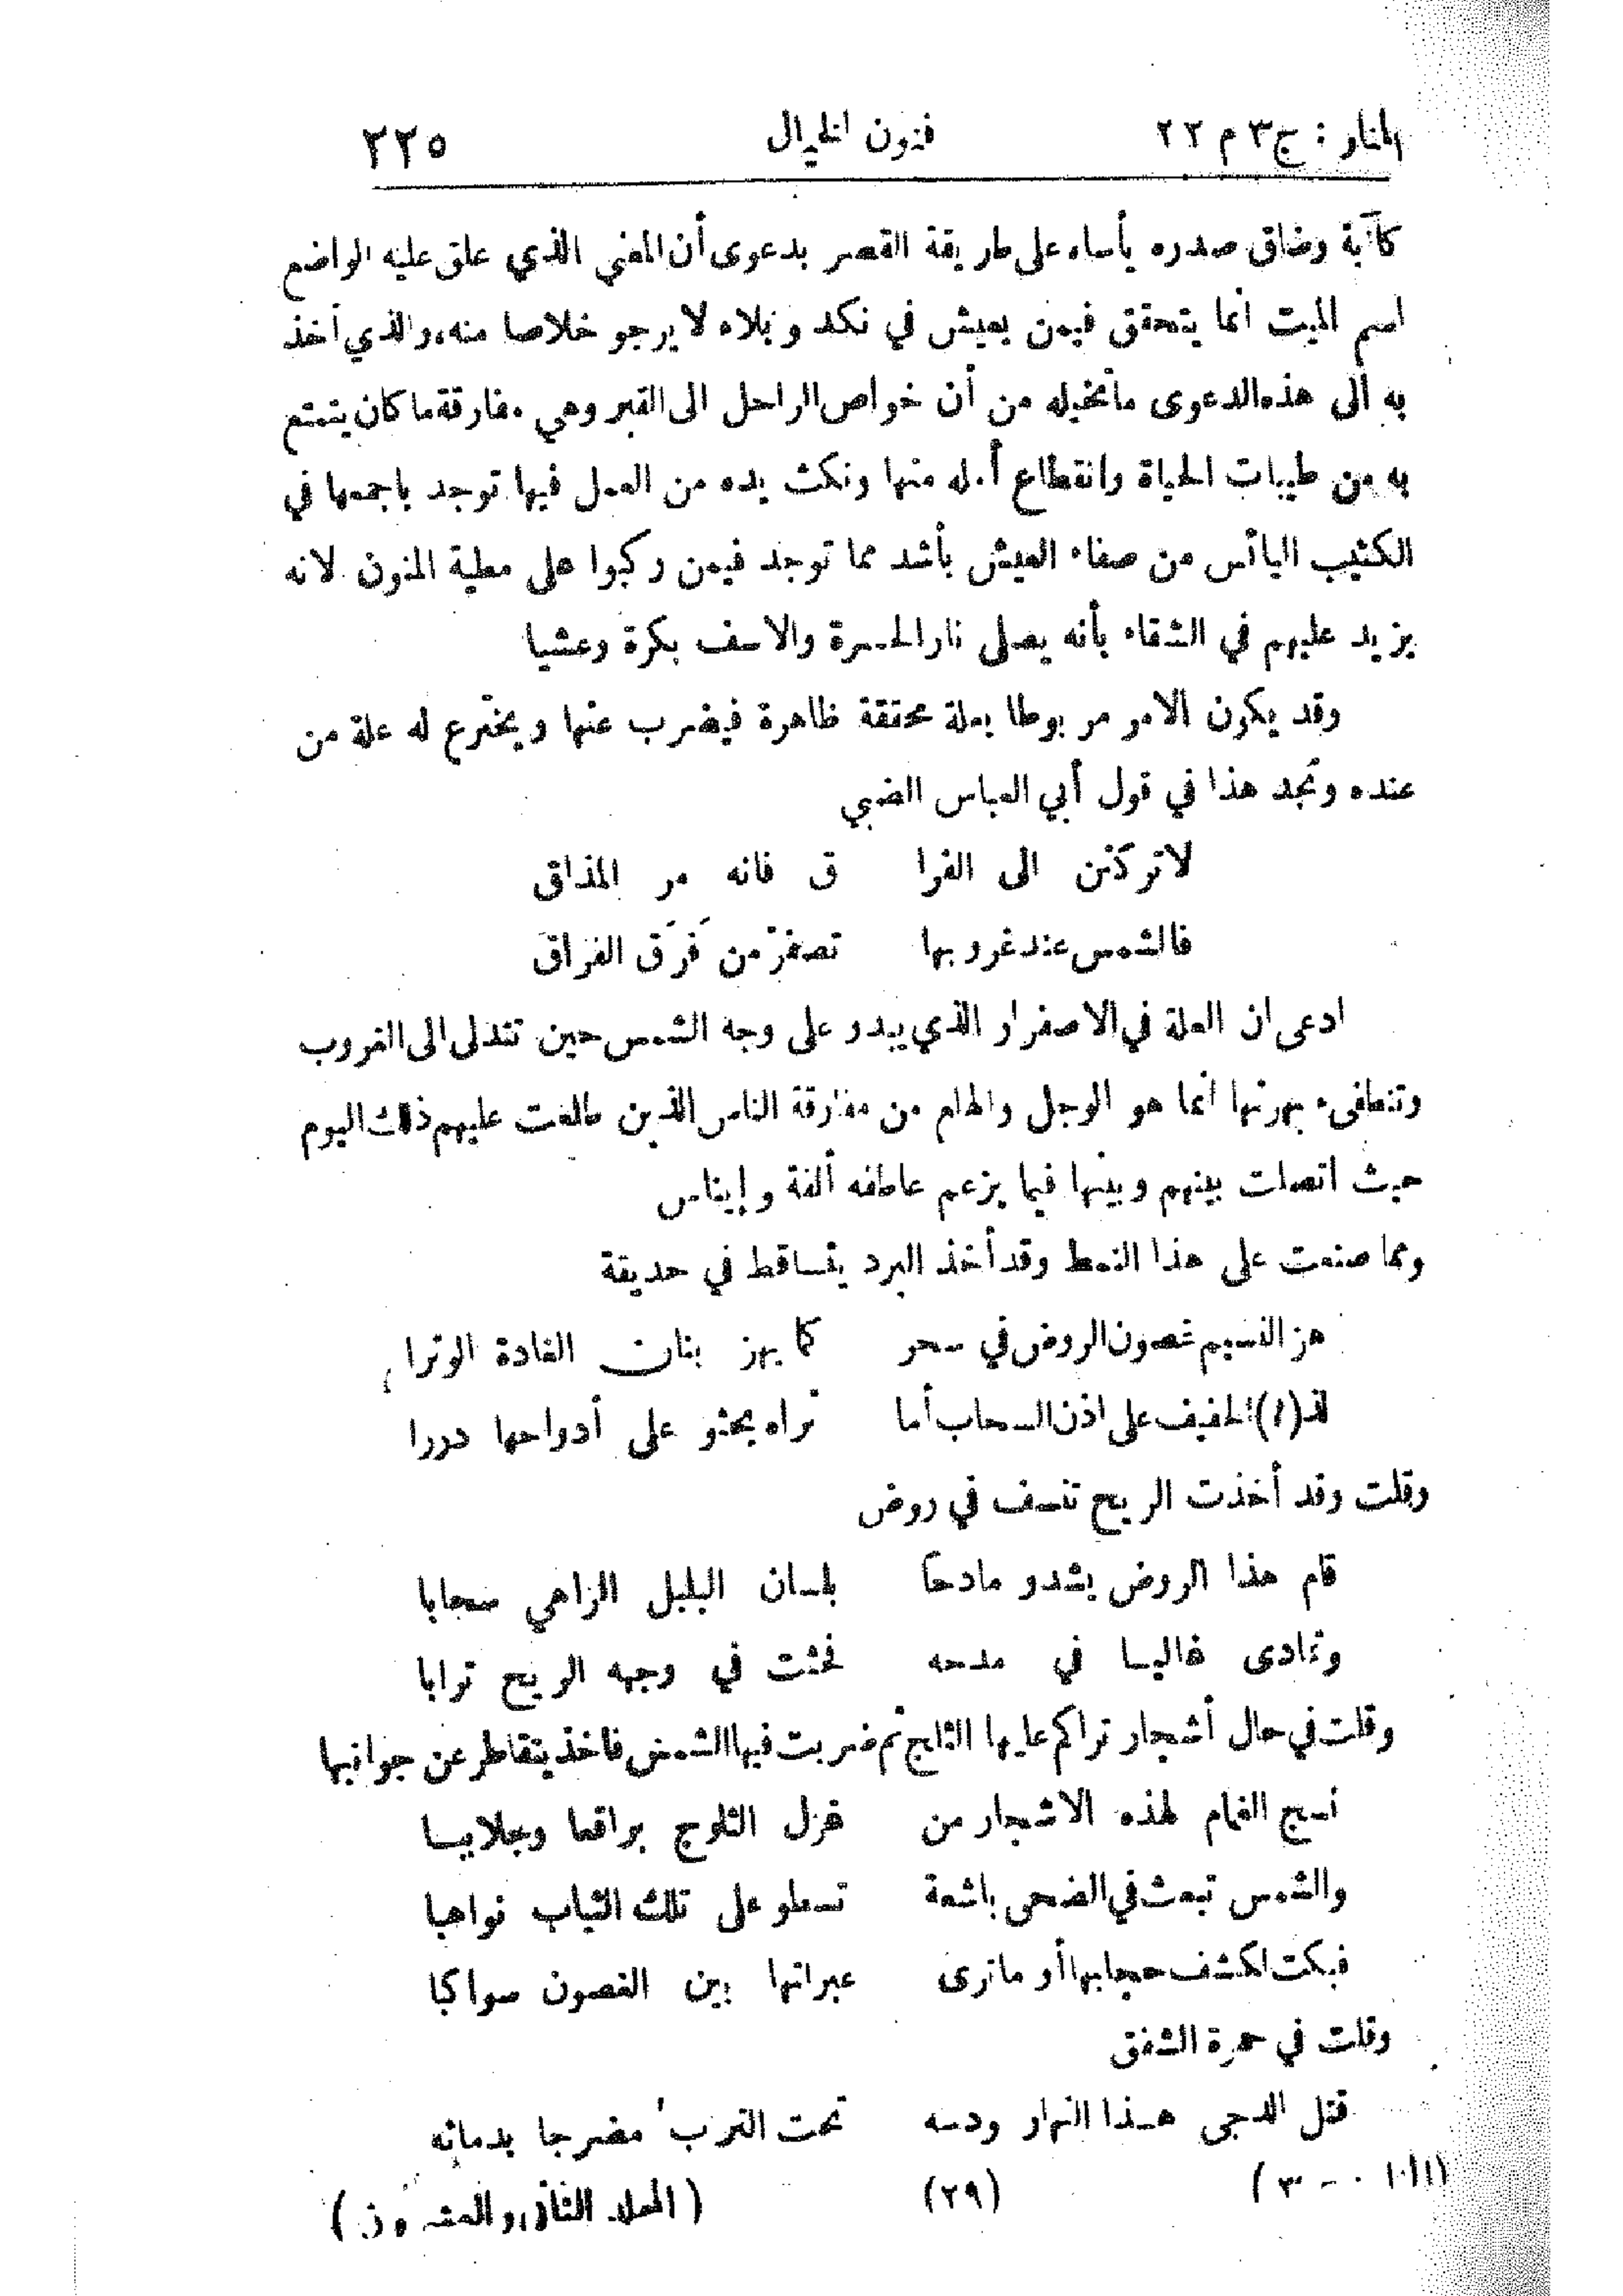 المنار : ج ٣ م ٢٢ فنون الخيال ٢٢٥
كآبة وضاق صدره يأساء على طريقة القصر بدعوى أن المعنى الذي علق عليه الواضع
اسم الميت انما يتحقق فيمن يعيش في نكد وبلاء لا يرجو خلاصا منه، والذي أخذ
به الى هذه الدعوى ما تخيله من أن خواص الراحل الى القبر وهي مفارقة ما كان يتمتع
به من طيبات الحياة وانقطاع أمله منها ونكث يده من العمل فيها توجد باجمعها في
الكئيب اليائس من صفاء العيش بأشد مما توجد فيمن ركبوا على مطية المنون لانه
يزيد عليهم في الشقاء بأنه يصلى نار الحسرة والاسف بكرة وعشيا
وقد يكون الامر مربوطا بعلة محققة ظاهرة فيضرب عنها ويخترع له علة من
عنده ونجد هذا في قول أبي العباس الضبي
لا تركنن الى الفرا ق فانه مر المذاق
فالشمس عند غروبها تصفرّ من فَرَق الفراق
ادعى ان العلة في الاصفرار الذي يبدو على وجه الشمس حين تتدلى الى الغروب
وتنطافىء بهرتها انما هو الوجل والهلع من مفارقة الناس الذين طلعت عليهم ذلك اليوم
حيث اتصلت بينهم وبينها فيما يزعم عاطفه ألفة وإيناس
ومما صنعت على هذا النمط وقد أخذ البرد يتساقط في حديقة
هز النسيم غصون الروض في سحر كما يهز بنان الغادة الوترا
لذ (١) الحفيف على اذن السحاب أما تراه يحثو على أدواحها دررا
وقلت وقد أخذت الريح تنسف في روض
قام هذا الروض يشدو مادحاً بلسان البلبل الزاهي سحابا
وتمادى غاليا في مدحه فحثت في وجهه الريح ترابا
وقلت في حال أشجار تراكم عليها الثلج ثم ضربت فيها الشمس فاخذ يتقاطر عن جوانبها
نسج الغمام لهذه الاشجار من غزل الثلوج براقعا وجلاببا
والشمس تبعث في الضحى باشعة تسطو على تلك الثياب نواهبا
فبكت لكشف حجابها أو ما ترى عبراتها بين الغصون سواكبا
وقلت في حمرة الشفق
قتل الدجى هذا النهار ودسه تحت الترب مضرجا بدمائه
(٢٩) (المجلد الثاني والعشرون)